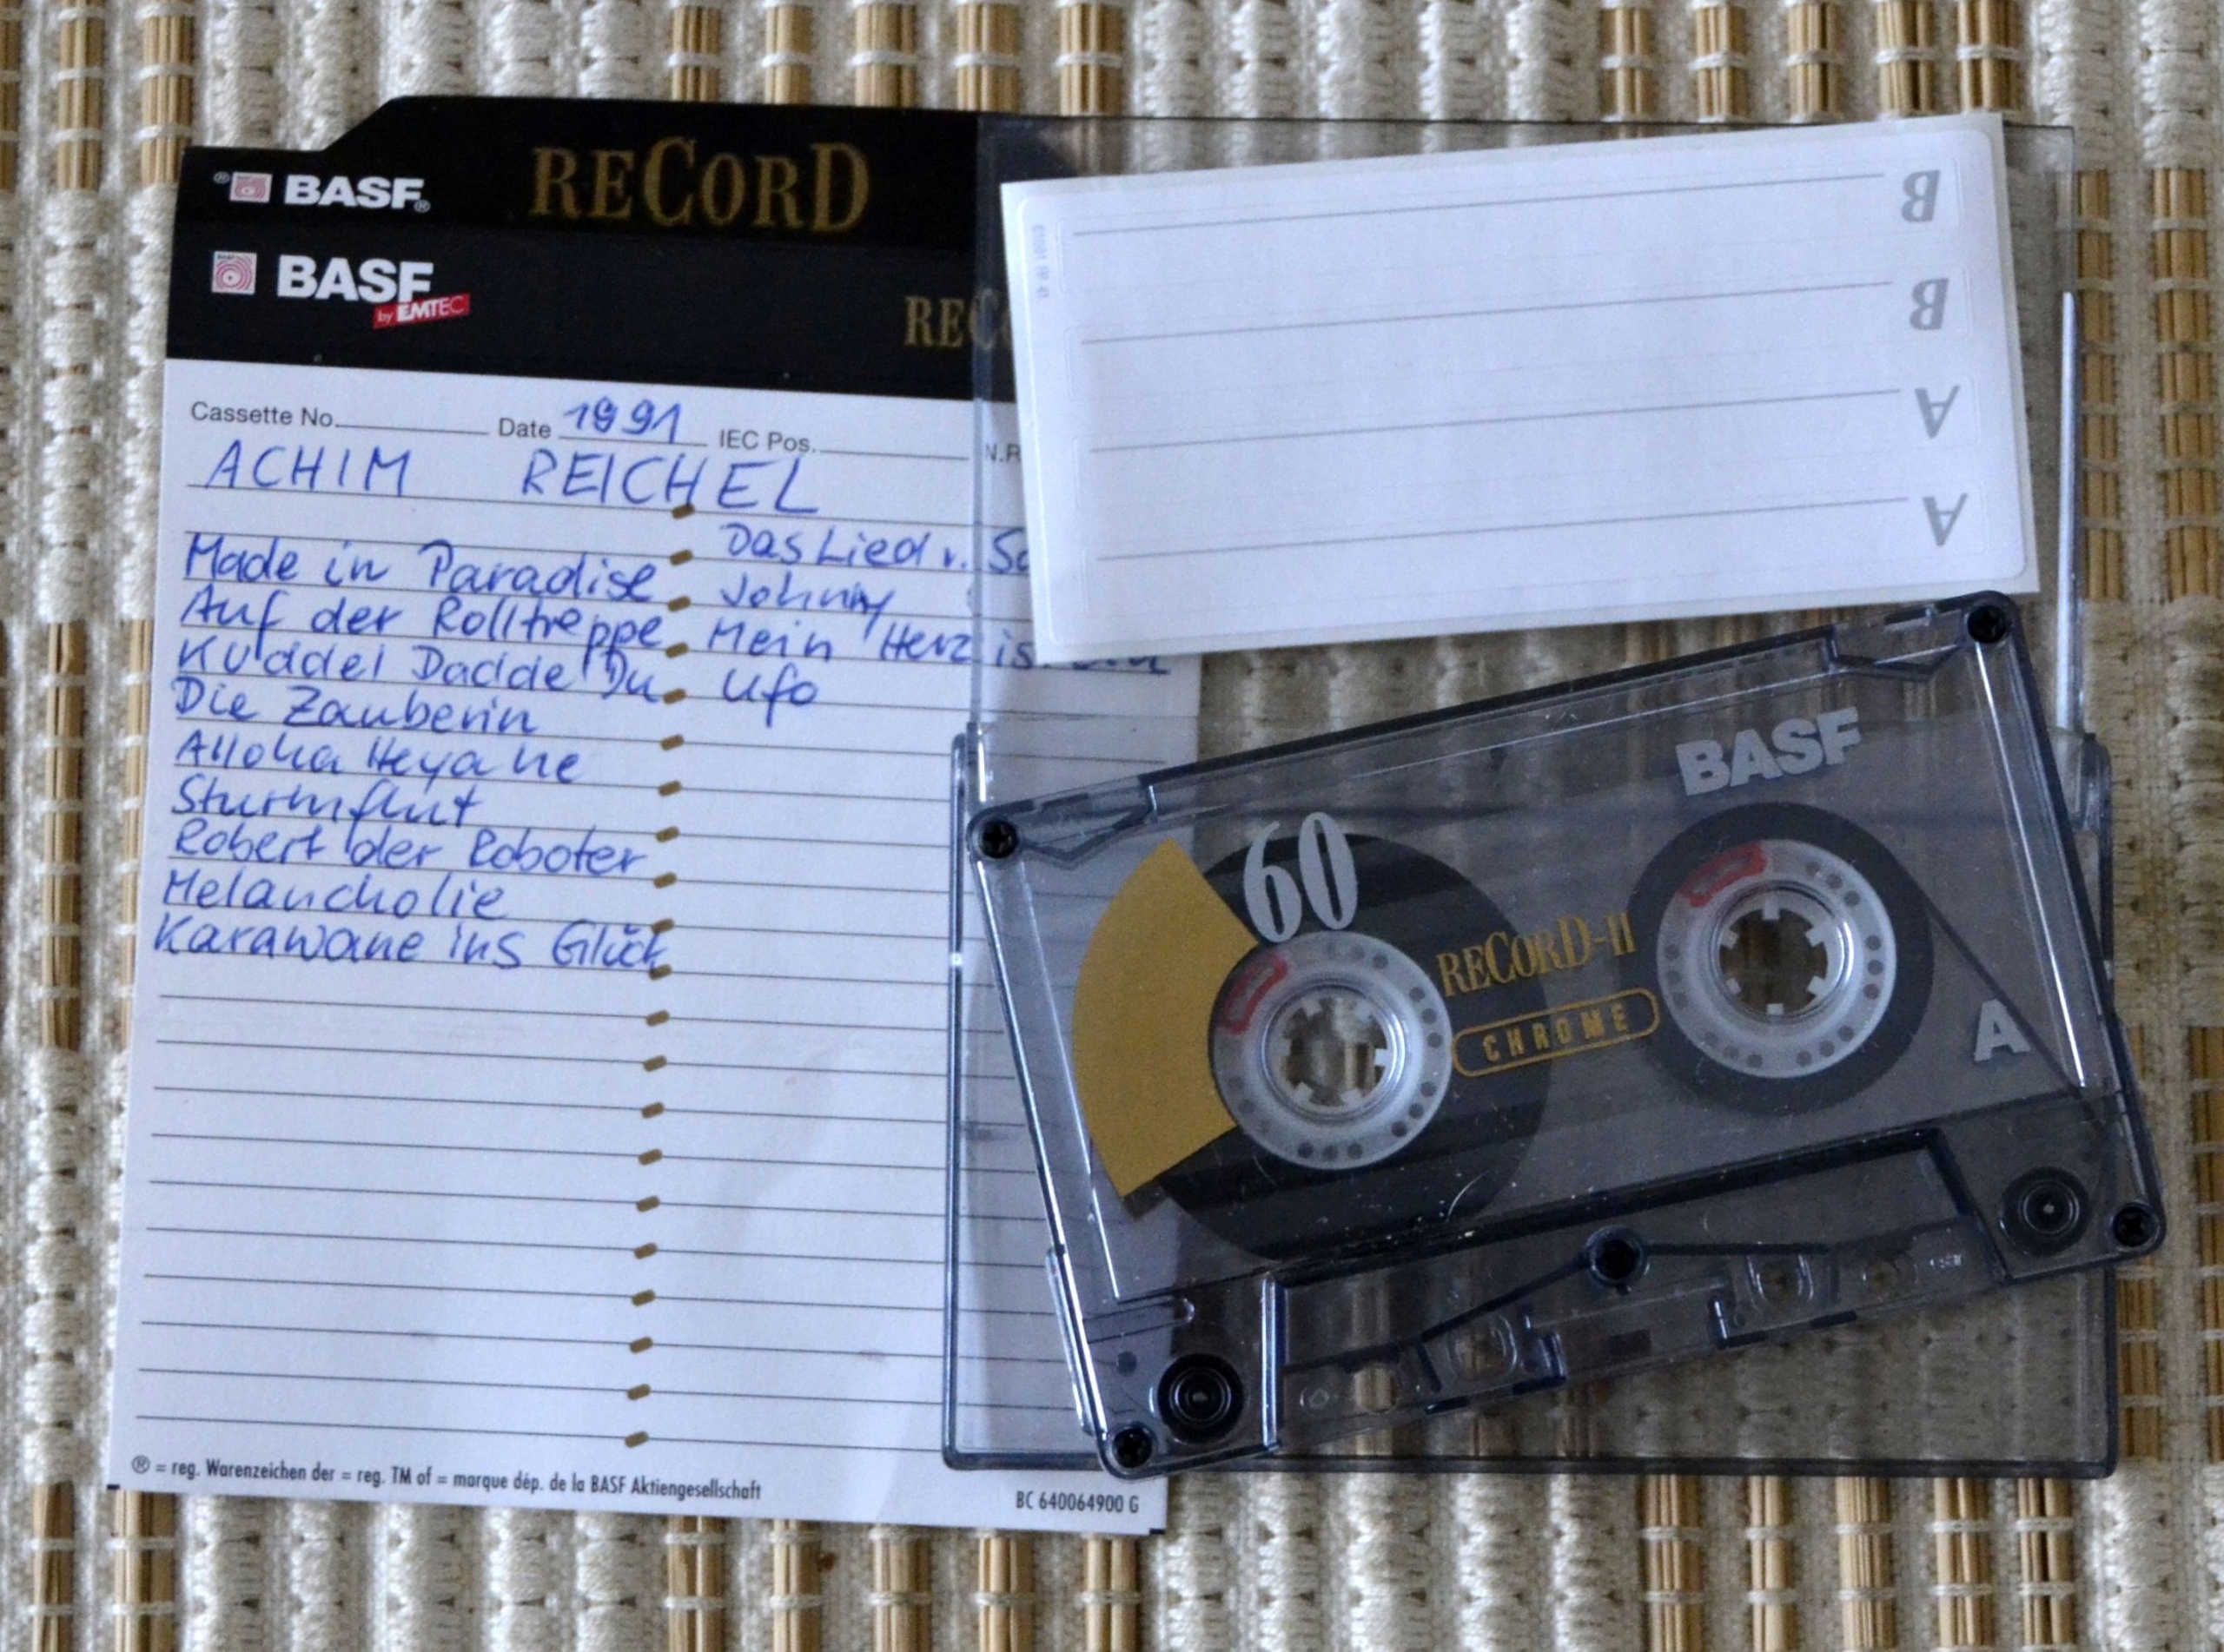 BASF
RECORD
BASF
by EMTEC
Cassette No. Date 1991 IEC Pos. N.R
ACHIM REICHEL
Das Lied v.
Made in Paradise Johnny
Auf der Rolltreppe Mein Herz
Kuddel Dadde Du Ufo
Die Zauberin
Alloha Heya he
Sturmflut
Robert der Roboter
Melancholie
Karawane ins Glück
® = reg. Warenzeichen der = reg. TM of = marque dép. de la BASF Aktiengesellschaft
BC 640064900 G
B
B
A
A
BASF
60
RECORD-II
CHROME
A